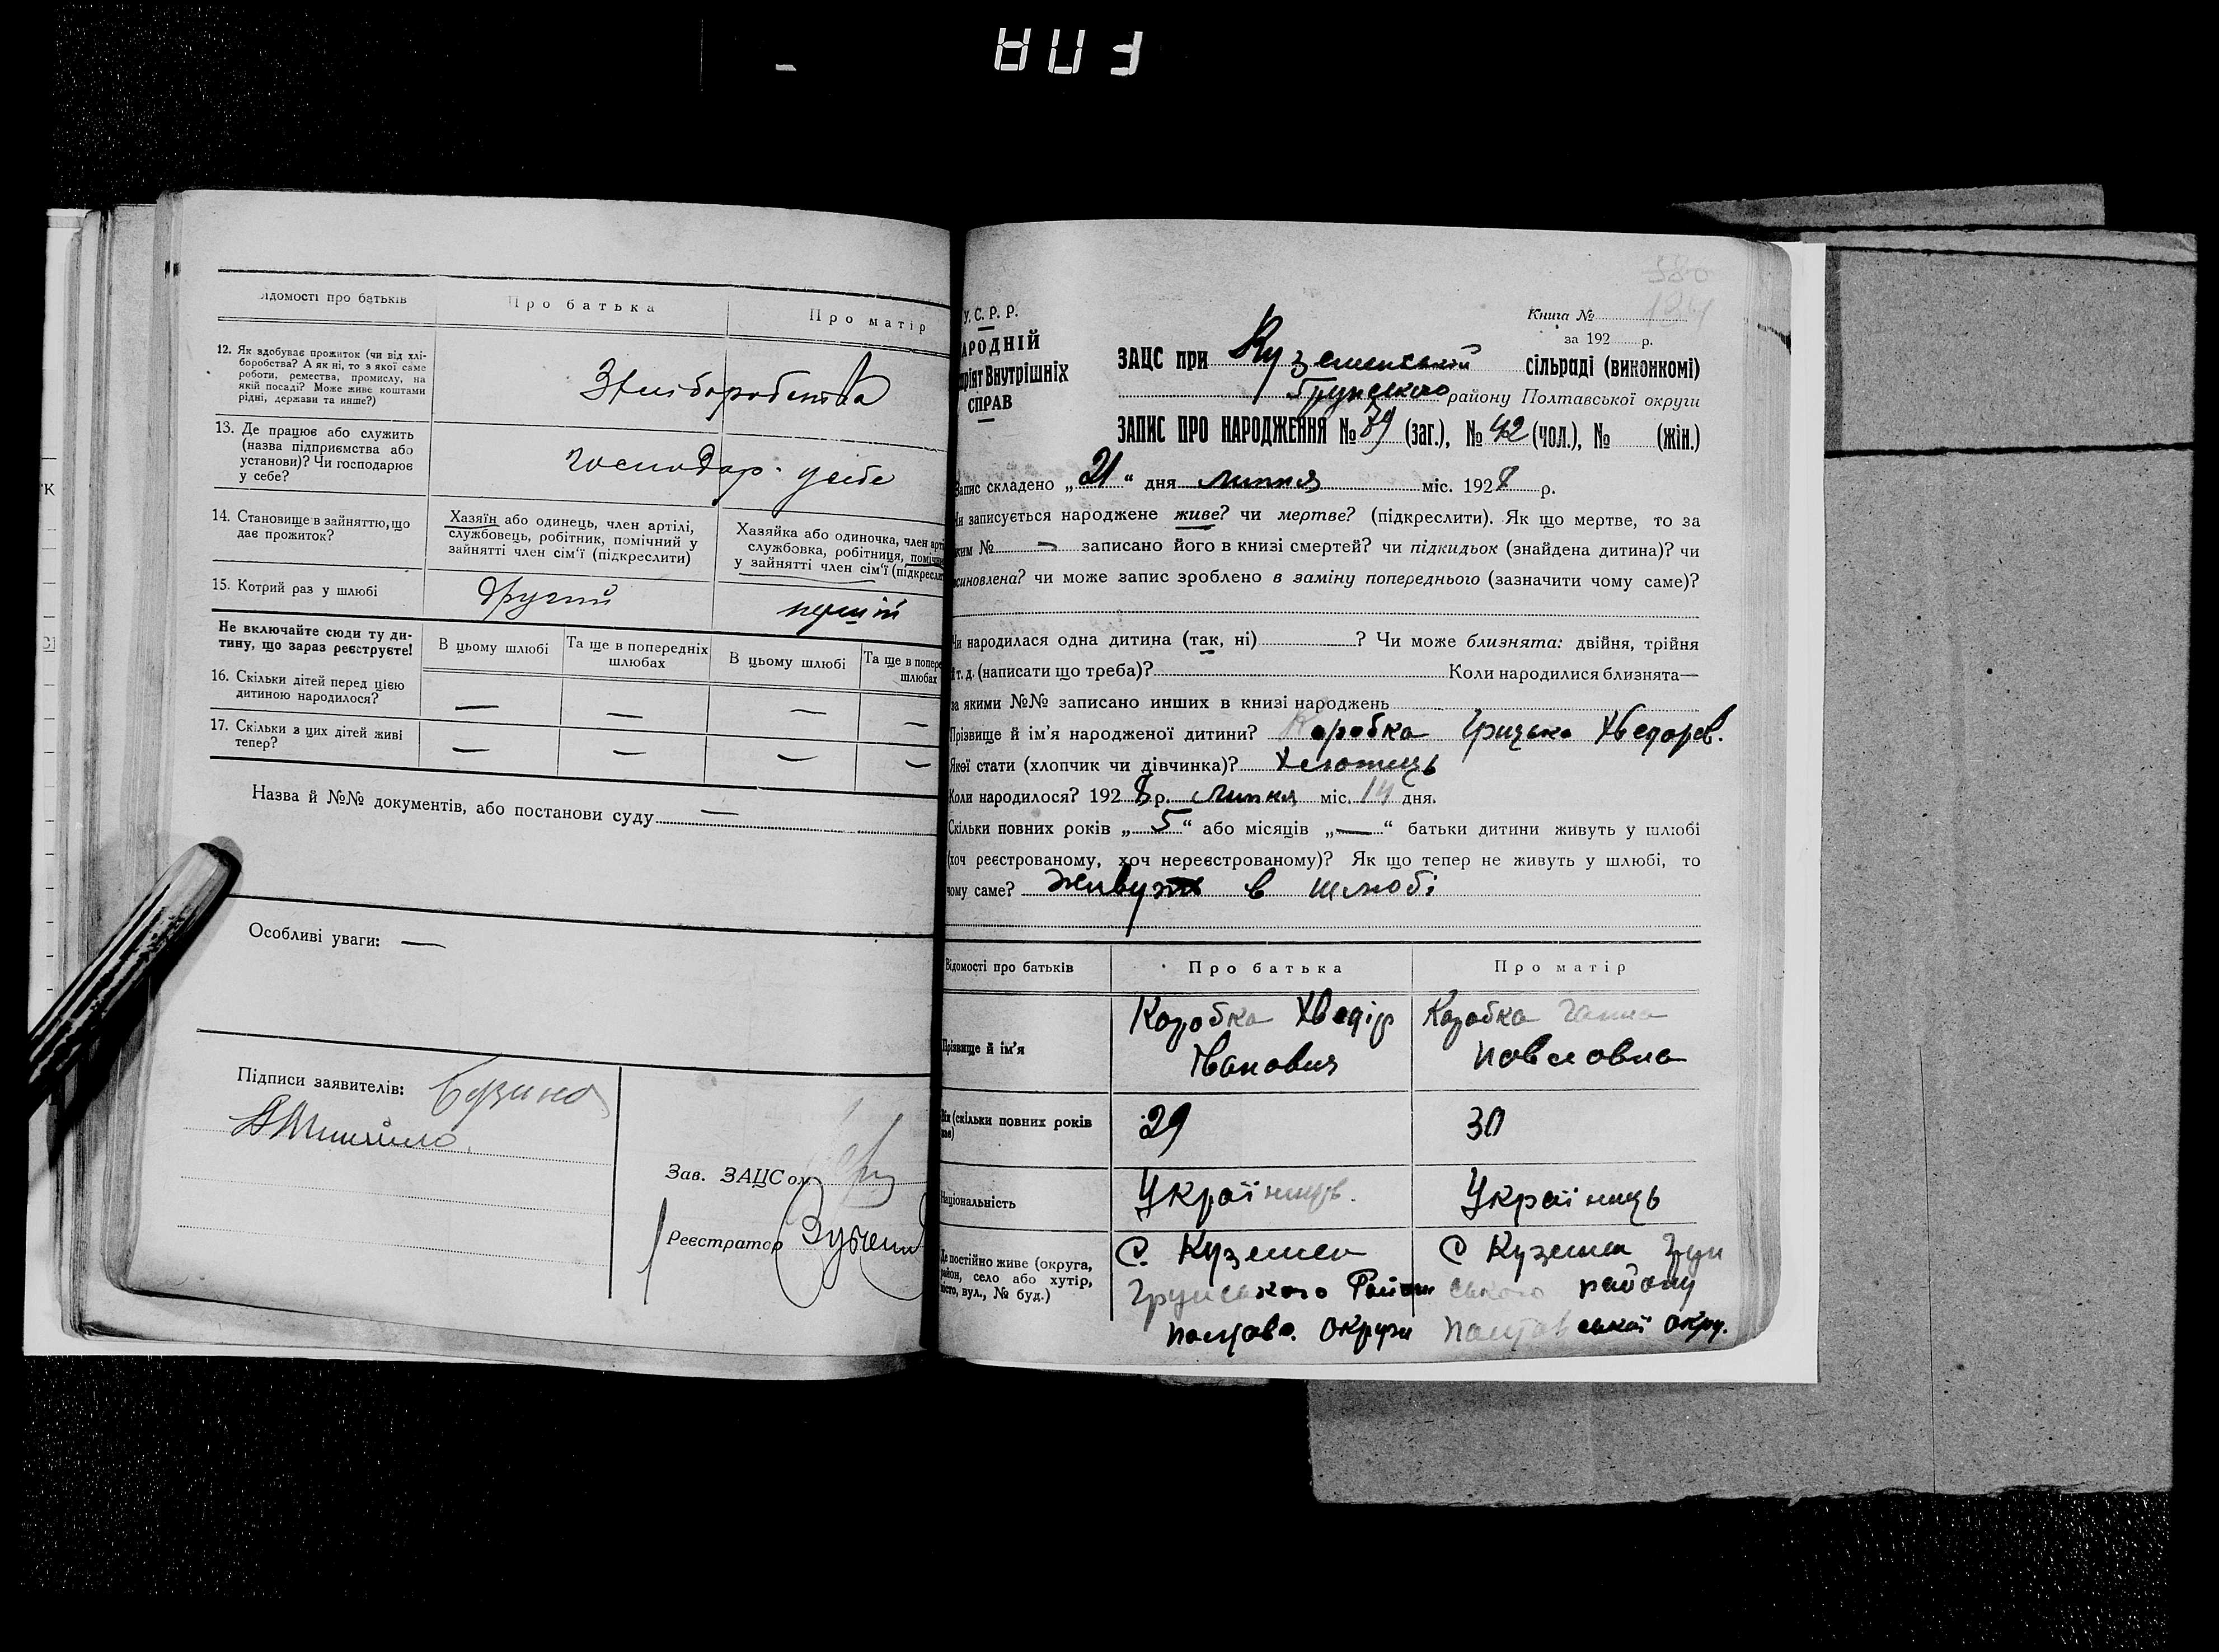 Відомості про батьків
Про батька
Про матір
12. Як здобуває прожиток (чи від хлі-
боробства? А як ні, то з якої саме
роботи, ремества, промислу, на
якій посаді? Може живе коштами
рідні, держави та инше?)
З хліборобства
13. Де працює або служить
(назва підприємства або
установи)? Чи господарює
у себе?
господар. у себе
14. Становище в зайняттю, що
дає прожиток?
Хазяїн або одинець, член артілі,
службовець, робітник, помічний у
зайнятті член сім'ї (підкреслити)
Хазяйка або одиночка, член арті
службовка, робітниця, поміч
у зайнятті член сім'ї (підкресли
15. Котрий раз у шлюбі
другий
першій
Не включайте сюди ту ди-
тину, що зараз реєструєте!
В цьому шлюбі
Та ще в попередніх
шлюбах
В цьому шлюбі
Та ще в попере
шлюбах
16. Скільки дітей перед цією
дитиною народилося?
— — — —
17. Скільки з цих дітей живі
тепер?
— — — —
Назва й №№ документів, або постанови суду —
Особливі уваги: —
Підписи заявителів:
Зав. ЗАЦСом
Реєстратор
У.С.Р.Р.
АРОДНІЙ
ріят Внутрішніх
СПРАВ
380
Книга №
за 192 р.
ЗАЦС при Куземенській сільраді (виконкомі)
Грунського району Полтавської округи
ЗАПИС ПРО НАРОДЖЕННЯ № 79 (заг.), № 42 (чол.), № (жін.)
Запис складено „21“ дня липня міс. 1928 р.
Чи записується народжене живе? чи мертве? (підкреслити). Як що мертве, то за
яким № — записано його в книзі смертей? чи підкидьок (знайдена дитина)? чи
синовлена? чи може запис зроблено в заміну попереднього (зазначити чому саме)?
Чи народилася одна дитина (так, ні) ? Чи може близнята: двійня, трійня
і т. д. (написати що треба)? Коли народилися близнята—
за якими №№ записано инших в книзі народжень
Прізвище й ім'я народженої дитини? Коробка Грицько Хведоров.
Якої стати (хлопчик чи дівчинка)? Хлопець
Коли народилося? 1928 р. липня міс. 14 дня.
Скільки повних років „5“ або місяців „—“ батьки дитини живуть у шлюбі
(хоч реєстрованому, хоч нереєстрованому)? Як що тепер не живуть у шлюбі, то
чому саме? живуть в шлюбі
Відомості про батьків
Про батька
Про матір
Прізвище й ім'я
Коробка Хведір
Іванович
Коробка Ганна
Павловна
Вік (скільки повних років
має)
29
30
Національність
Українець.
Українець
Де постійно живе (округа,
район, село або хутір,
місто, вул., № буд.)
С. Куземен
Грунського Район
Полтав. Округи
С Куземен Грун
ського району
Полтавської окру.